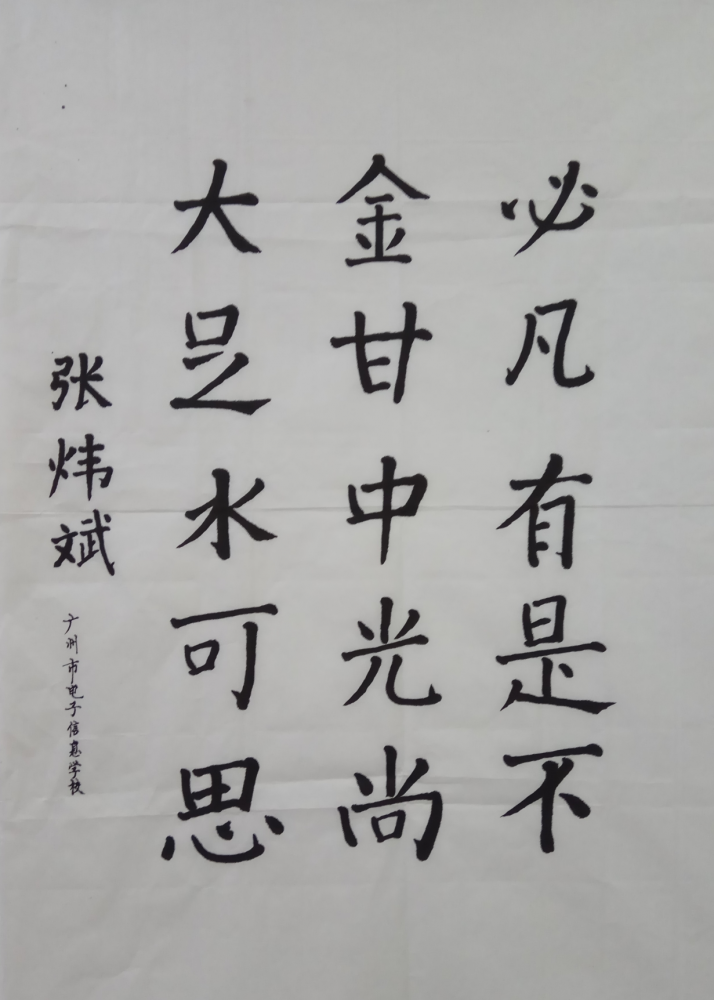 必凡有是不
金甘中光尚
大足水可思
张炜斌
广州市电子信息学校